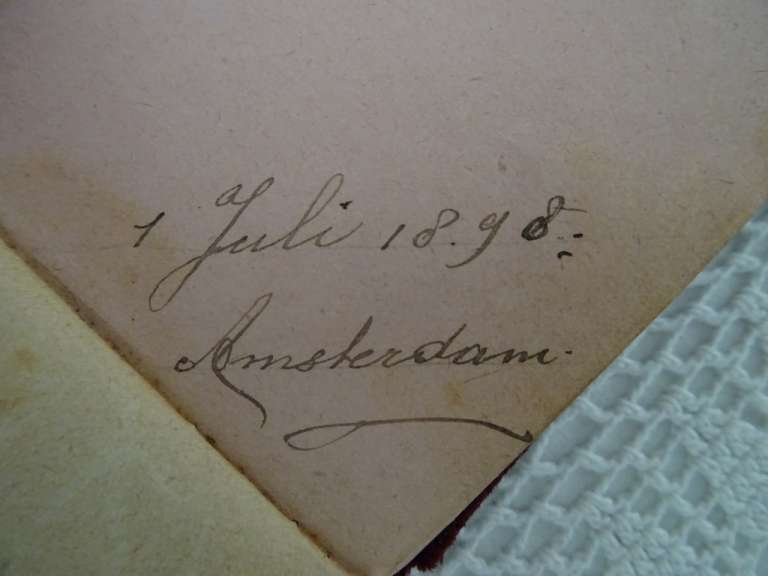 1 Juli 18.98.
Amsterdam.